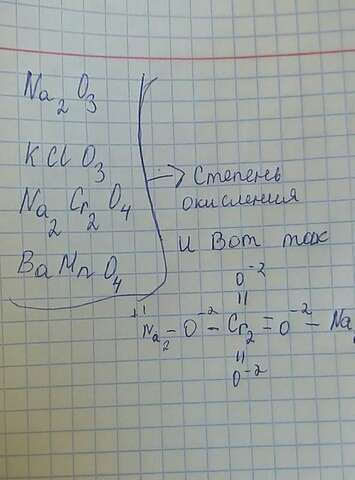 Na₂O₃
KClO₃
Na₂Cr₂O₄
BaMnO₄
-> Степень
окисления
и Вот так
O⁻²
=
⁺¹Na₂-O⁻²-Cr₂=O⁻²-Na
=
O⁻²